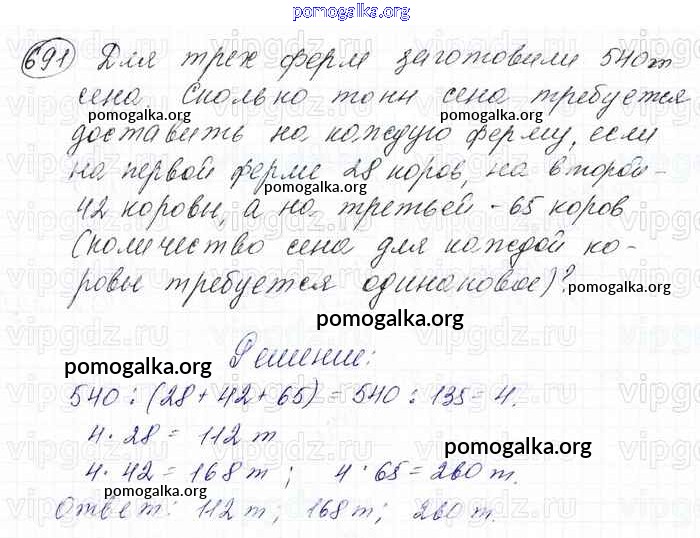 pomogalka.org
691 Для трех ферм заготовили 540 т
сена. Сколько тонн сена требуется
pomogalka.org pomogalka.org
доставить на каждую ферму, если
на первой ферме 28 коров, на второй -
pomogalka.org
42 коровы, а на третьей - 65 коров
(количество сена для каждой ко-
ровы требуется одинаковое)?
pomogalka.org
pomogalka.org
Решение:
pomogalka.org
540 : (28 + 42 + 65) = 540 : 135 = 4.
4 · 28 = 112 т
pomogalka.org
4 · 42 = 168 т ; 4 · 65 = 260 т.
pomogalka.org
Ответ: 112 т; 168 т; 260 т.